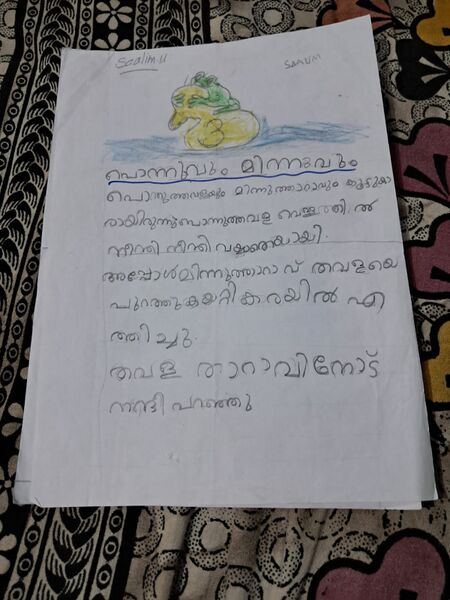 Saalim.U
SAALIM
പൊന്നുവും മിന്നുവും
പൊന്നുത്തവളയും മിന്നുത്താറാവും കൂട്ടുകാ
രായിരുന്നു പൊന്നുത്തവള വെള്ളത്തിൽ
നീന്തി നീന്തി വയ്യാതെയായി.
അപ്പോൾ മിന്നുത്താറാവ് തവളയെ
പുറത്തു കയറ്റി കരയിൽ എ
ത്തിച്ചു.
തവള താറാവിനോട്
നന്ദി പറഞ്ഞു